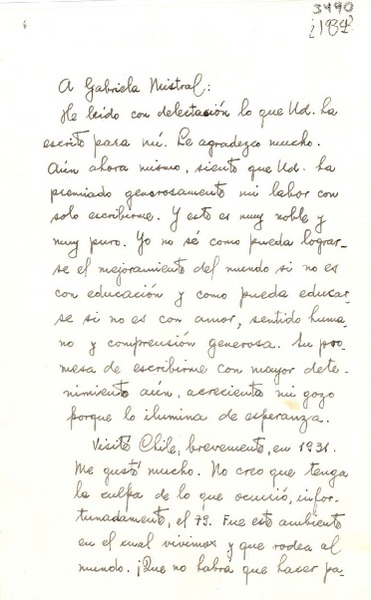 3490
¿1932?
A Gabriela Mistral:
He leído con delectación lo que Ud. ha
escrito para mí. Le agradezco mucho.
Aún ahora mismo, siento que Ud. ha
premiado generosamente mi labor con
solo escribirme. Y esto es muy noble y
muy puro. Yo no sé como pueda lograr-
se el mejoramiento del mundo si no es
con educación y como pueda educar-
se si no es con amor, sentido huma-
no y comprensión generosa. Su pro-
mesa de escribirme con mayor dete-
nimiento aún, acrecienta mi gozo
porque lo ilumina de esperanza.
Visité Chile, brevemente, en 1931.
Me gustó mucho. No creo que tenga
la culpa de lo que ocurrió, infor-
tunadamente, el 79. Fue este ambiente
en el cual vivimos y que rodea al
mundo. ¡Que no habrá que hacer pa-